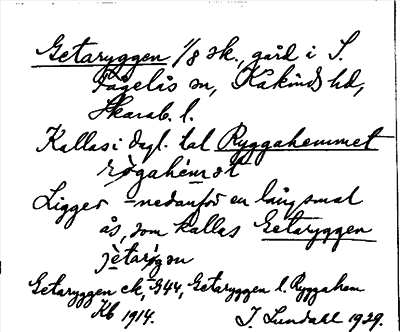 Getaryggen 1/8 sk., gård i S.
Fågelås sn, Kåkinds hd,
Skarab. l.
Kallas i dagl. tal Ryggahemmet
Ligger nedanför en långsmal
ås, som kallas Getaryggen
Getaryggen ek, 944, Getaryggen l. Ryggahem
Kb 1914. J. Lundahl 1929.